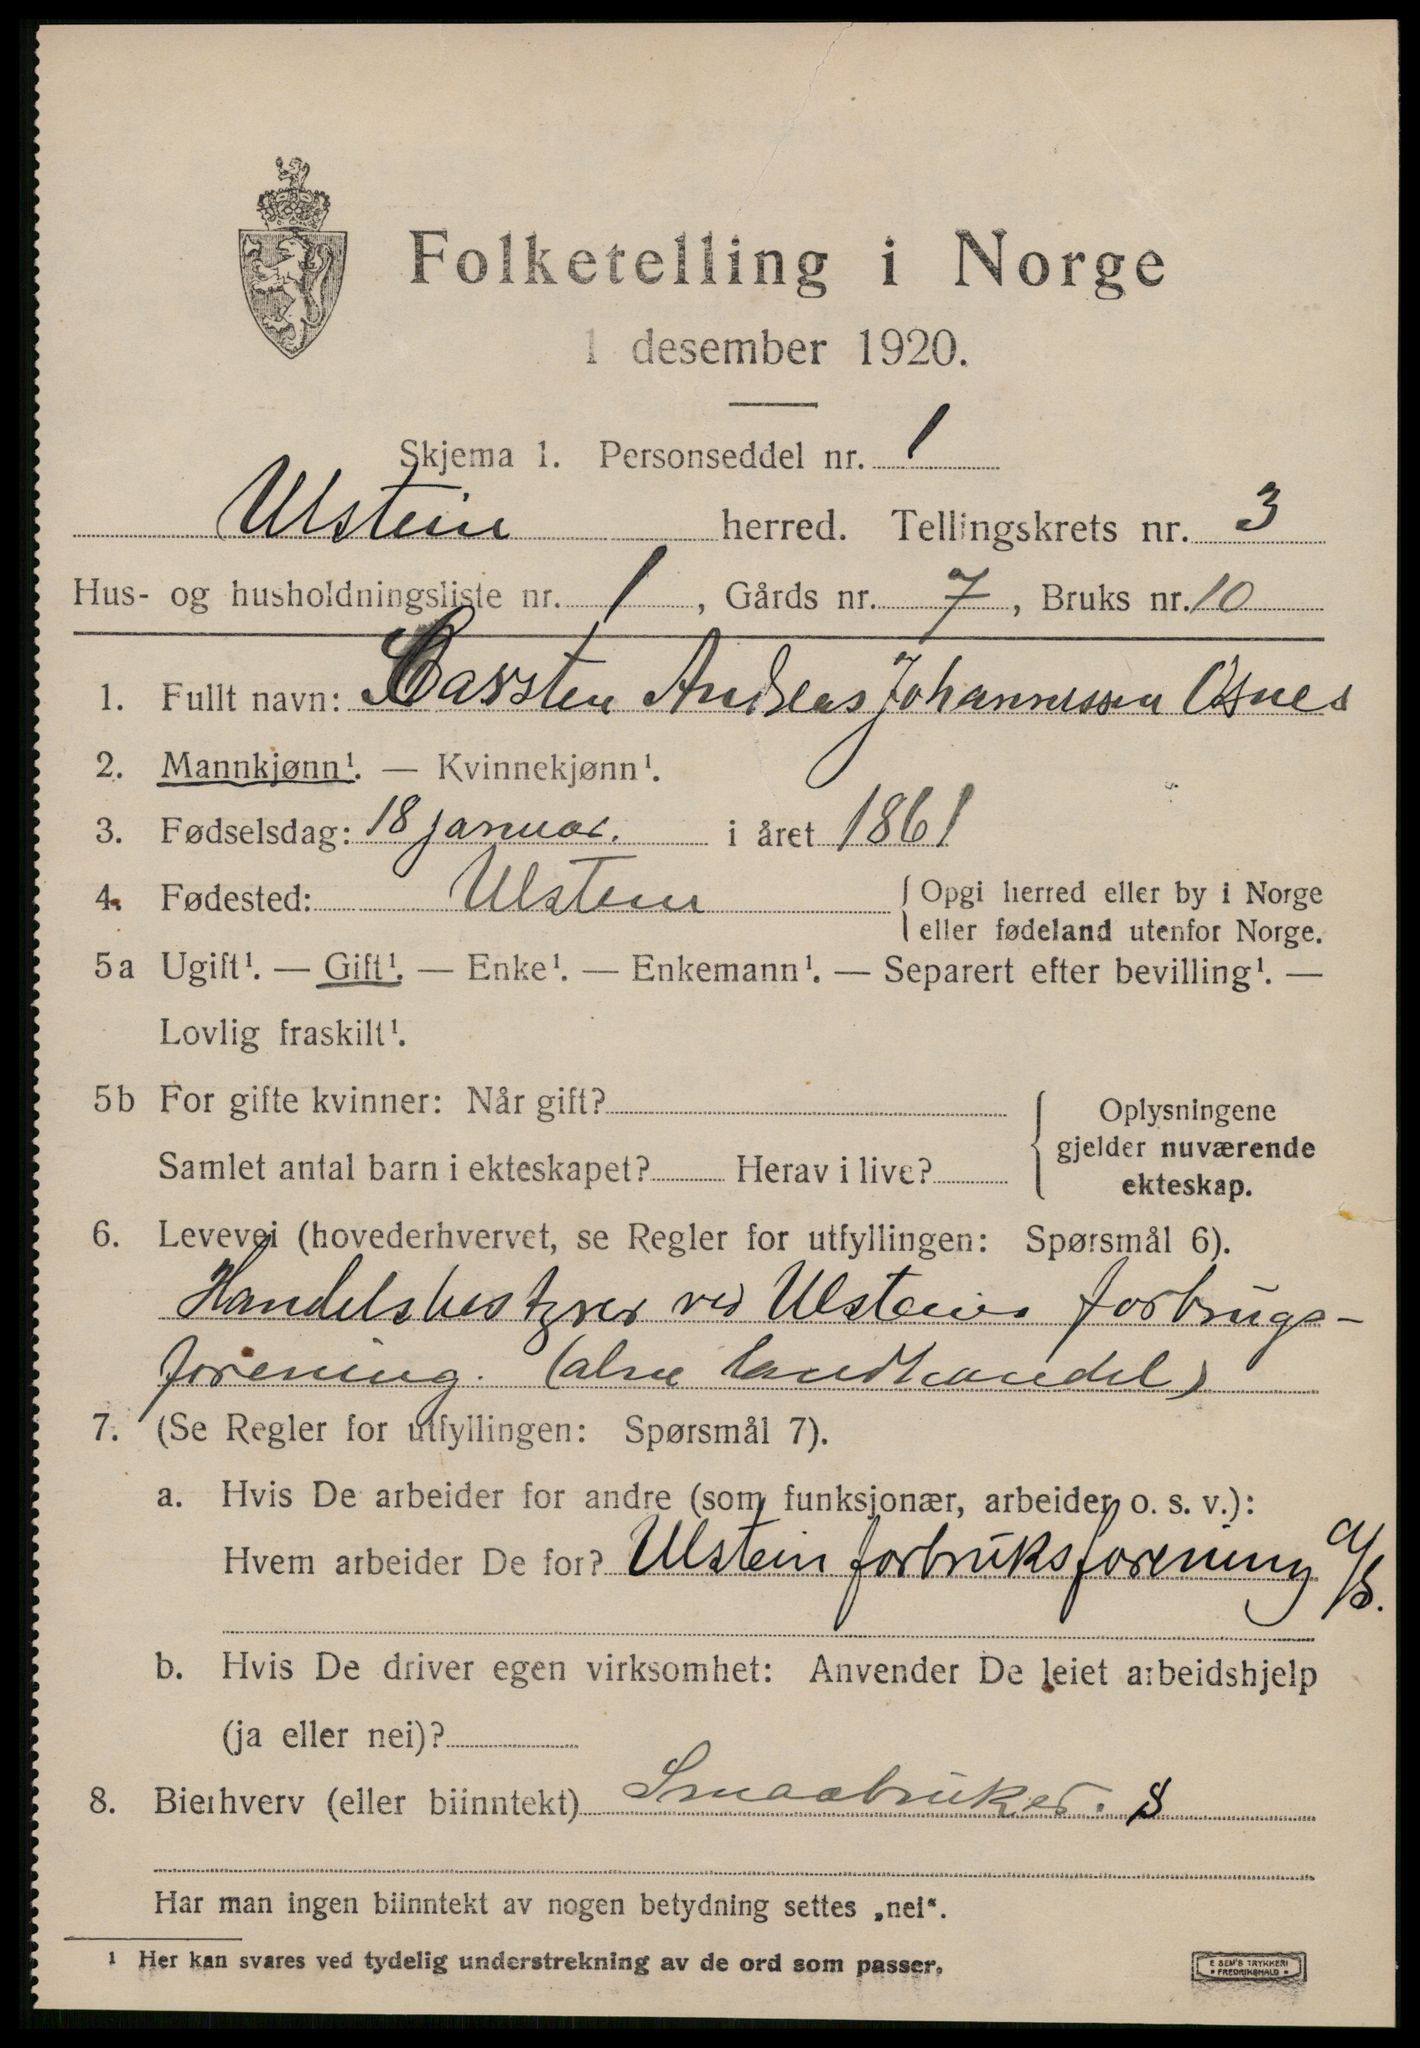 Folketelling i Norge
1 desember 1920.
Skjema 1. Personseddel nr. 1
Ulstein herred. Tellingskrets nr. 3
Hus- og husholdningsliste nr. 1, Gårds nr. 7, Bruks nr. 10
1. Fullt navn: Carsten Andreas Johannessen Osnes
2. Mannkjønn¹. — Kvinnekjønn¹.
3. Fødselsdag: 18 januar. i året 1861
4. Fødested: Ulstein { Opgi herred eller by i Norge
eller fødeland utenfor Norge.
5a Ugift¹. — Gift¹. — Enke¹. — Enkemann¹. — Separert efter bevilling¹. —
Lovlig fraskilt¹.
5b For gifte kvinner: Når gift? { Oplysningene
gjelder nuværende
Samlet antal barn i ekteskapet? Herav i live?
ekteskap.
6. Levevei (hovederhvervet, se Regler for utfyllingen: Spørsmål 6).
Handelsbestyrer ved Ulsteins forbrugs-
forening. (alm landhandel)
7. (Se Regler for utfyllingen: Spørsmål 7).
a. Hvis De arbeider for andre (som funksjonær, arbeider o. s. v.):
Hvem arbeider De for? Ulstein forbruksforening a/s.
b. Hvis De driver egen virksomhet: Anvender De leiet arbeidshjelp
(ja eller nei)?
8. Bierhverv (eller biinntekt) Smaabruker. S
Har man ingen biinntekt av nogen betydning settes „nei“.
¹ Her kan svares ved tydelig understrekning av de ord som passer.
E SEM'S TRYKKERI
• FREDRIKSHALD •